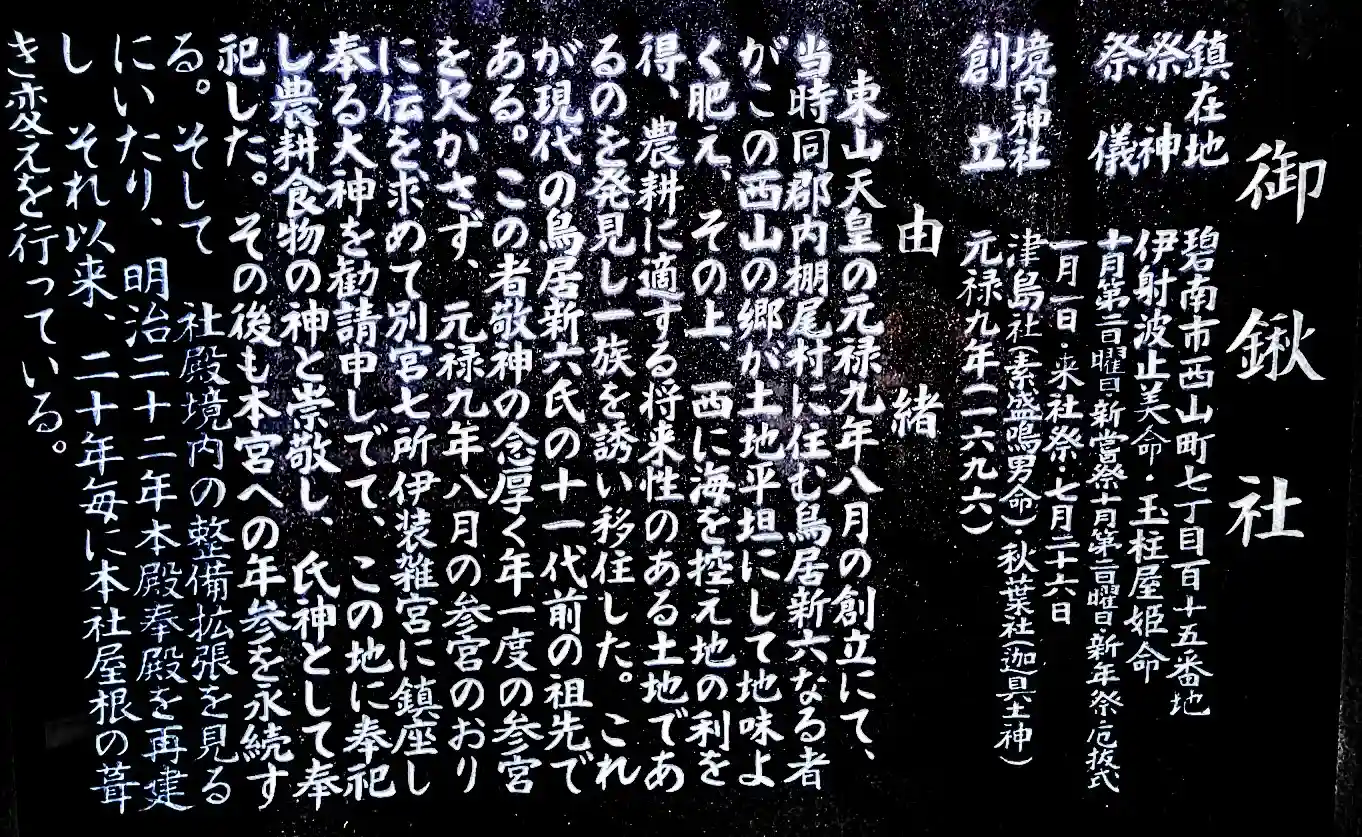 御鍬社
鎮在地 碧南市西山町七丁目百十五番地
祭神 伊射波止美命・玉柱屋姫命
祭儀 十月第二日曜日新嘗祭十月第二日曜日新年祭・厄抜式
一月一日・来社祭・七月二十六日
境内神社 津島社(素盛鳴男命)・秋葉社(迦具土神)
創立 元禄九年(一六九六)
由緒
東山天皇の元禄九年八月の創立にて、
当時同郡内棚尾村に住む鳥居新六なる者
がこの西山の郷が土地平坦にして地味よ
く肥え、その上、西に海を控え地の利を
得、農耕に適する将来性のある土地であ
るのを発見し一族を誘い移住した。これ
が現代の鳥居新六氏の十一代前の祖先で
ある。この者敬神の念厚く年一度の参宮
を欠かさず、元禄九年八月の参宮のおり
に伝を求めて別宮七所伊装雑宮に鎮座し
奉る大神を勧請申しでて、この地に奉祀
し農耕食物の神と崇敬し、氏神として奉
祀した。その後も本宮への年参を永続す
る。そして 社殿境内の整備拡張を見る
にいたり、明治二十二年本殿奉殿を再建
し それ以来、二十年毎に本社屋根の葺
き変えを行っている。